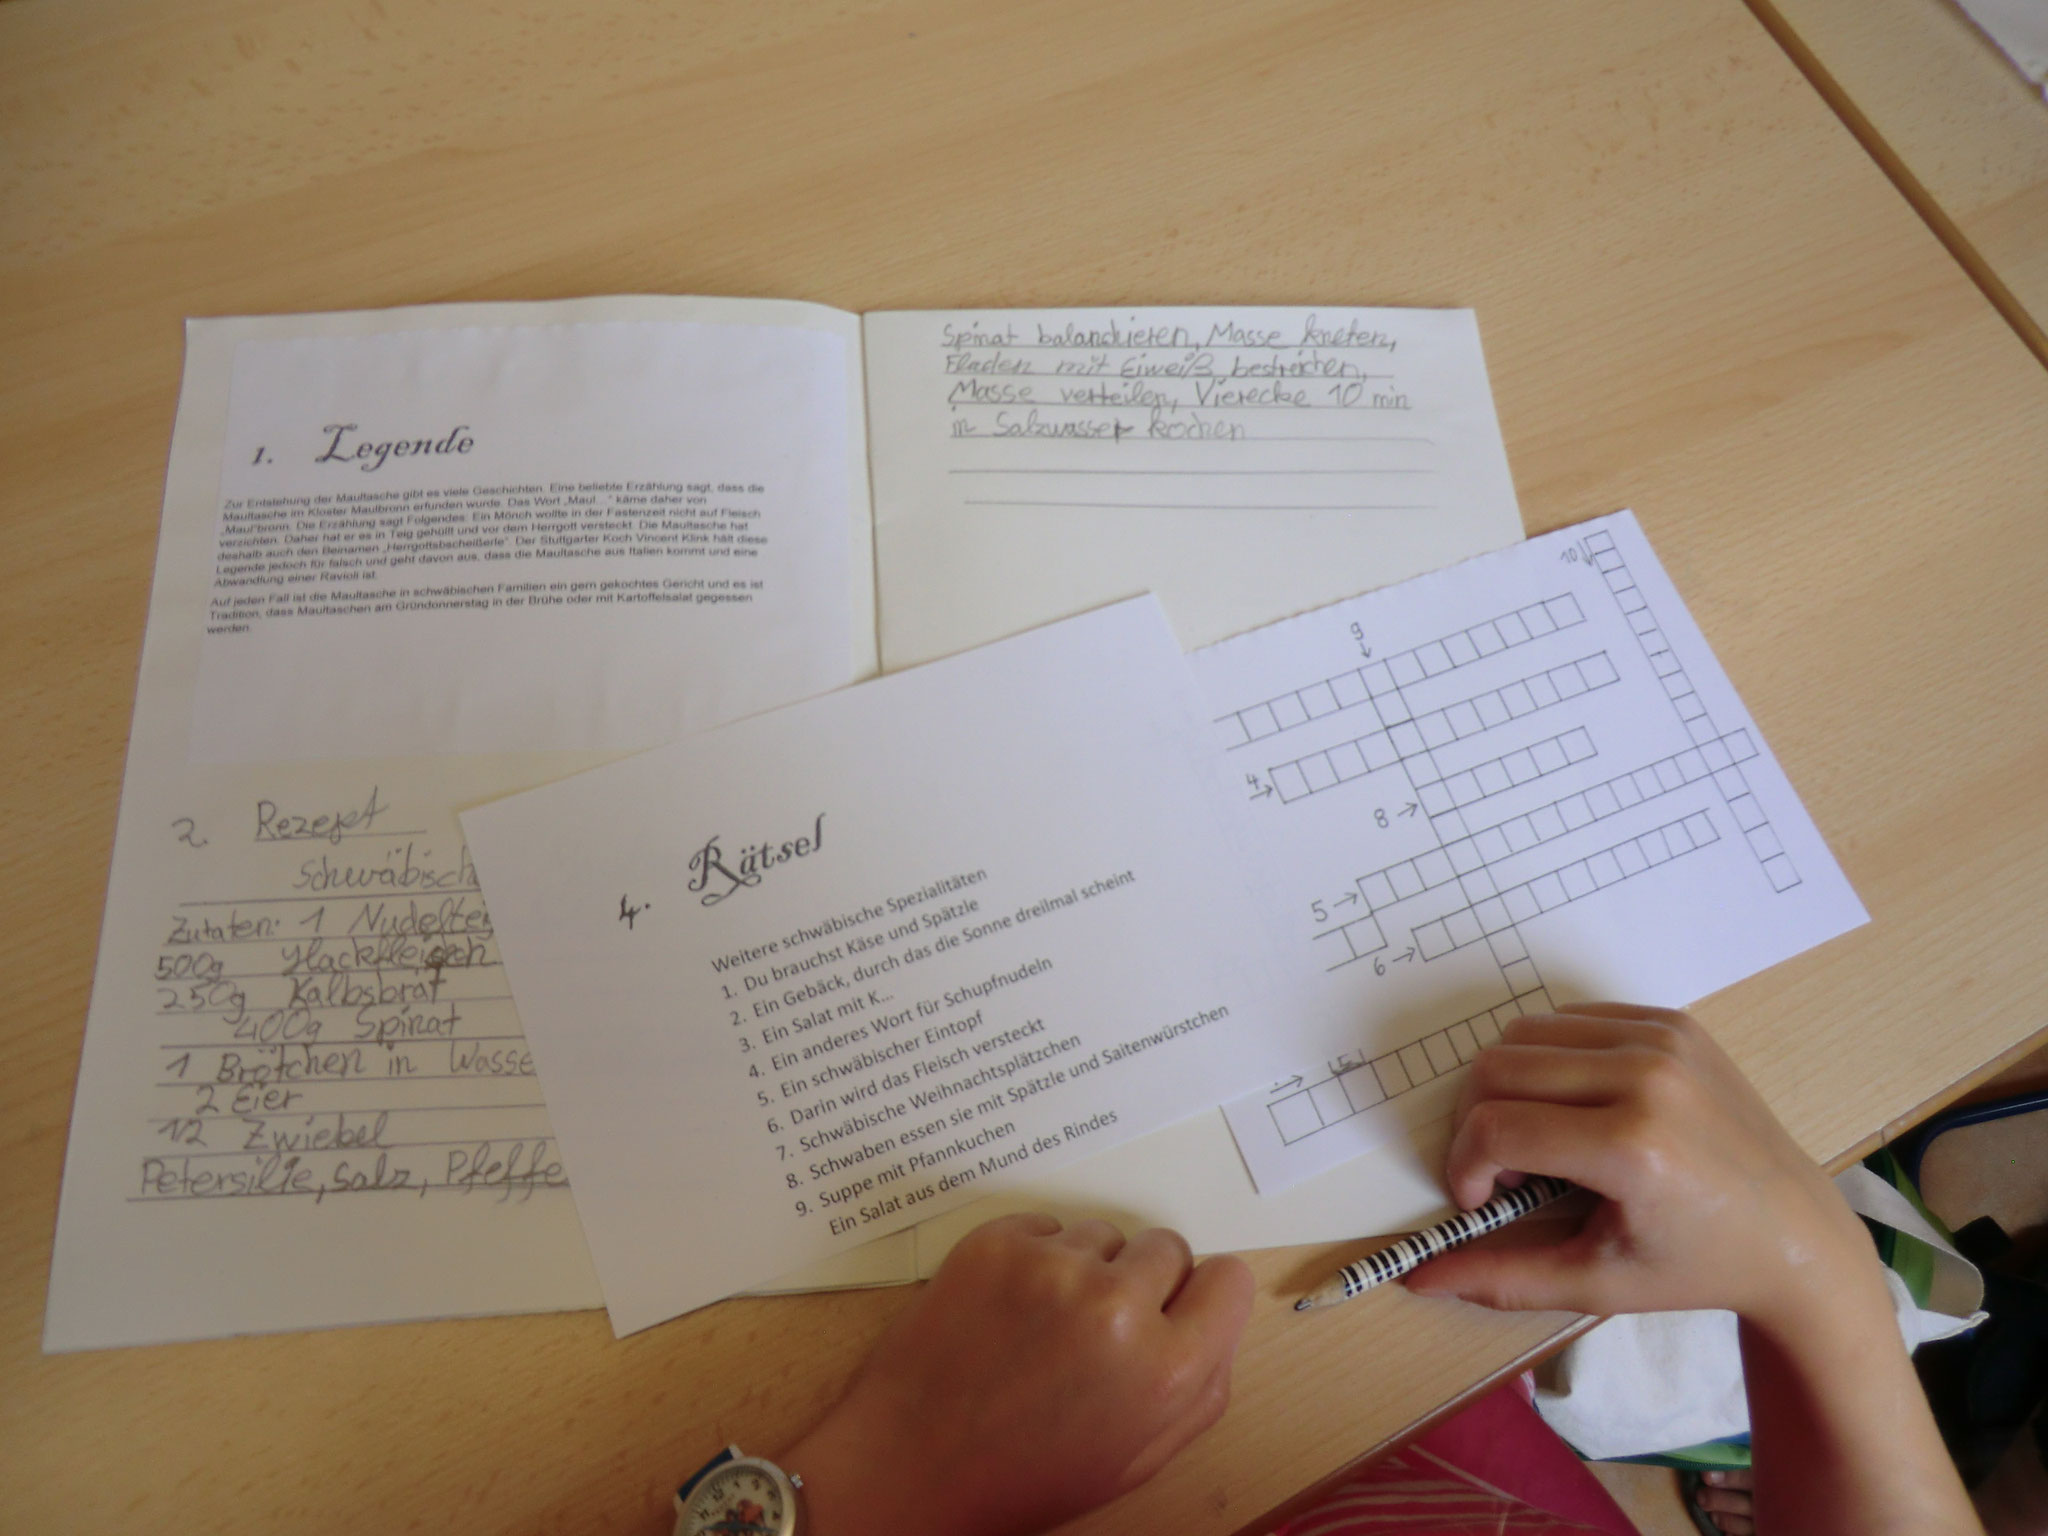 1. Legende
Zur Entstehung der Maultasche gibt es viele Geschichten. Eine beliebte Erzählung sagt, dass die
Maultasche im Kloster Maulbronn erfunden wurde. Das Wort „Maul...“ käme daher von
„Maul“bronn. Die Erzählung sagt Folgendes: Ein Mönch wollte in der Fastenzeit nicht auf Fleisch
verzichten. Daher hat er es in Teig gehüllt und vor dem Herrgott versteckt. Die Maultasche hat
deshalb auch den Beinamen „Herrgottsbscheißerle“. Der Stuttgarter Koch Vincent Klink hält diese
Legende jedoch für falsch und geht davon aus, dass die Maultasche aus Italien kommt und eine
Abwandlung einer Ravioli ist.
Auf jeden Fall ist die Maultasche in schwäbischen Familien ein gern gekochtes Gericht und es ist
Tradition, dass Maultaschen am Gründonnerstag in der Brühe oder mit Kartoffelsalat gegessen
werden.
2. Rezept
Schwäbisch
Zutaten: 1 Nudelteig
500g Hackfleisch
250g Kalbsbrät
400g Spinat
1 Brötchen in Wasse
2 Eier
1/2 Zwiebel
Petersilie, Salz, Pfeffe
Spinat balanchieren, Masse kneten,
Fladen mit Eiweiß bestreichen,
Masse verteilen, Vierecke 10 min
in Salzwasser kochen
4. Rätsel
Weitere schwäbische Spezialitäten
1. Du brauchst Käse und Spätzle
2. Ein Gebäck, durch das die Sonne dreilmal scheint
3. Ein Salat mit K...
4. Ein anderes Wort für Schupfnudeln
5. Ein schwäbischer Eintopf
6. Darin wird das Fleisch versteckt
7. Schwäbische Weihnachtsplätzchen
8. Schwaben essen sie mit Spätzle und Saitenwürstchen
9. Suppe mit Pfannkuchen
Ein Salat aus dem Mund des Rindes
10
9
4
8
5
6